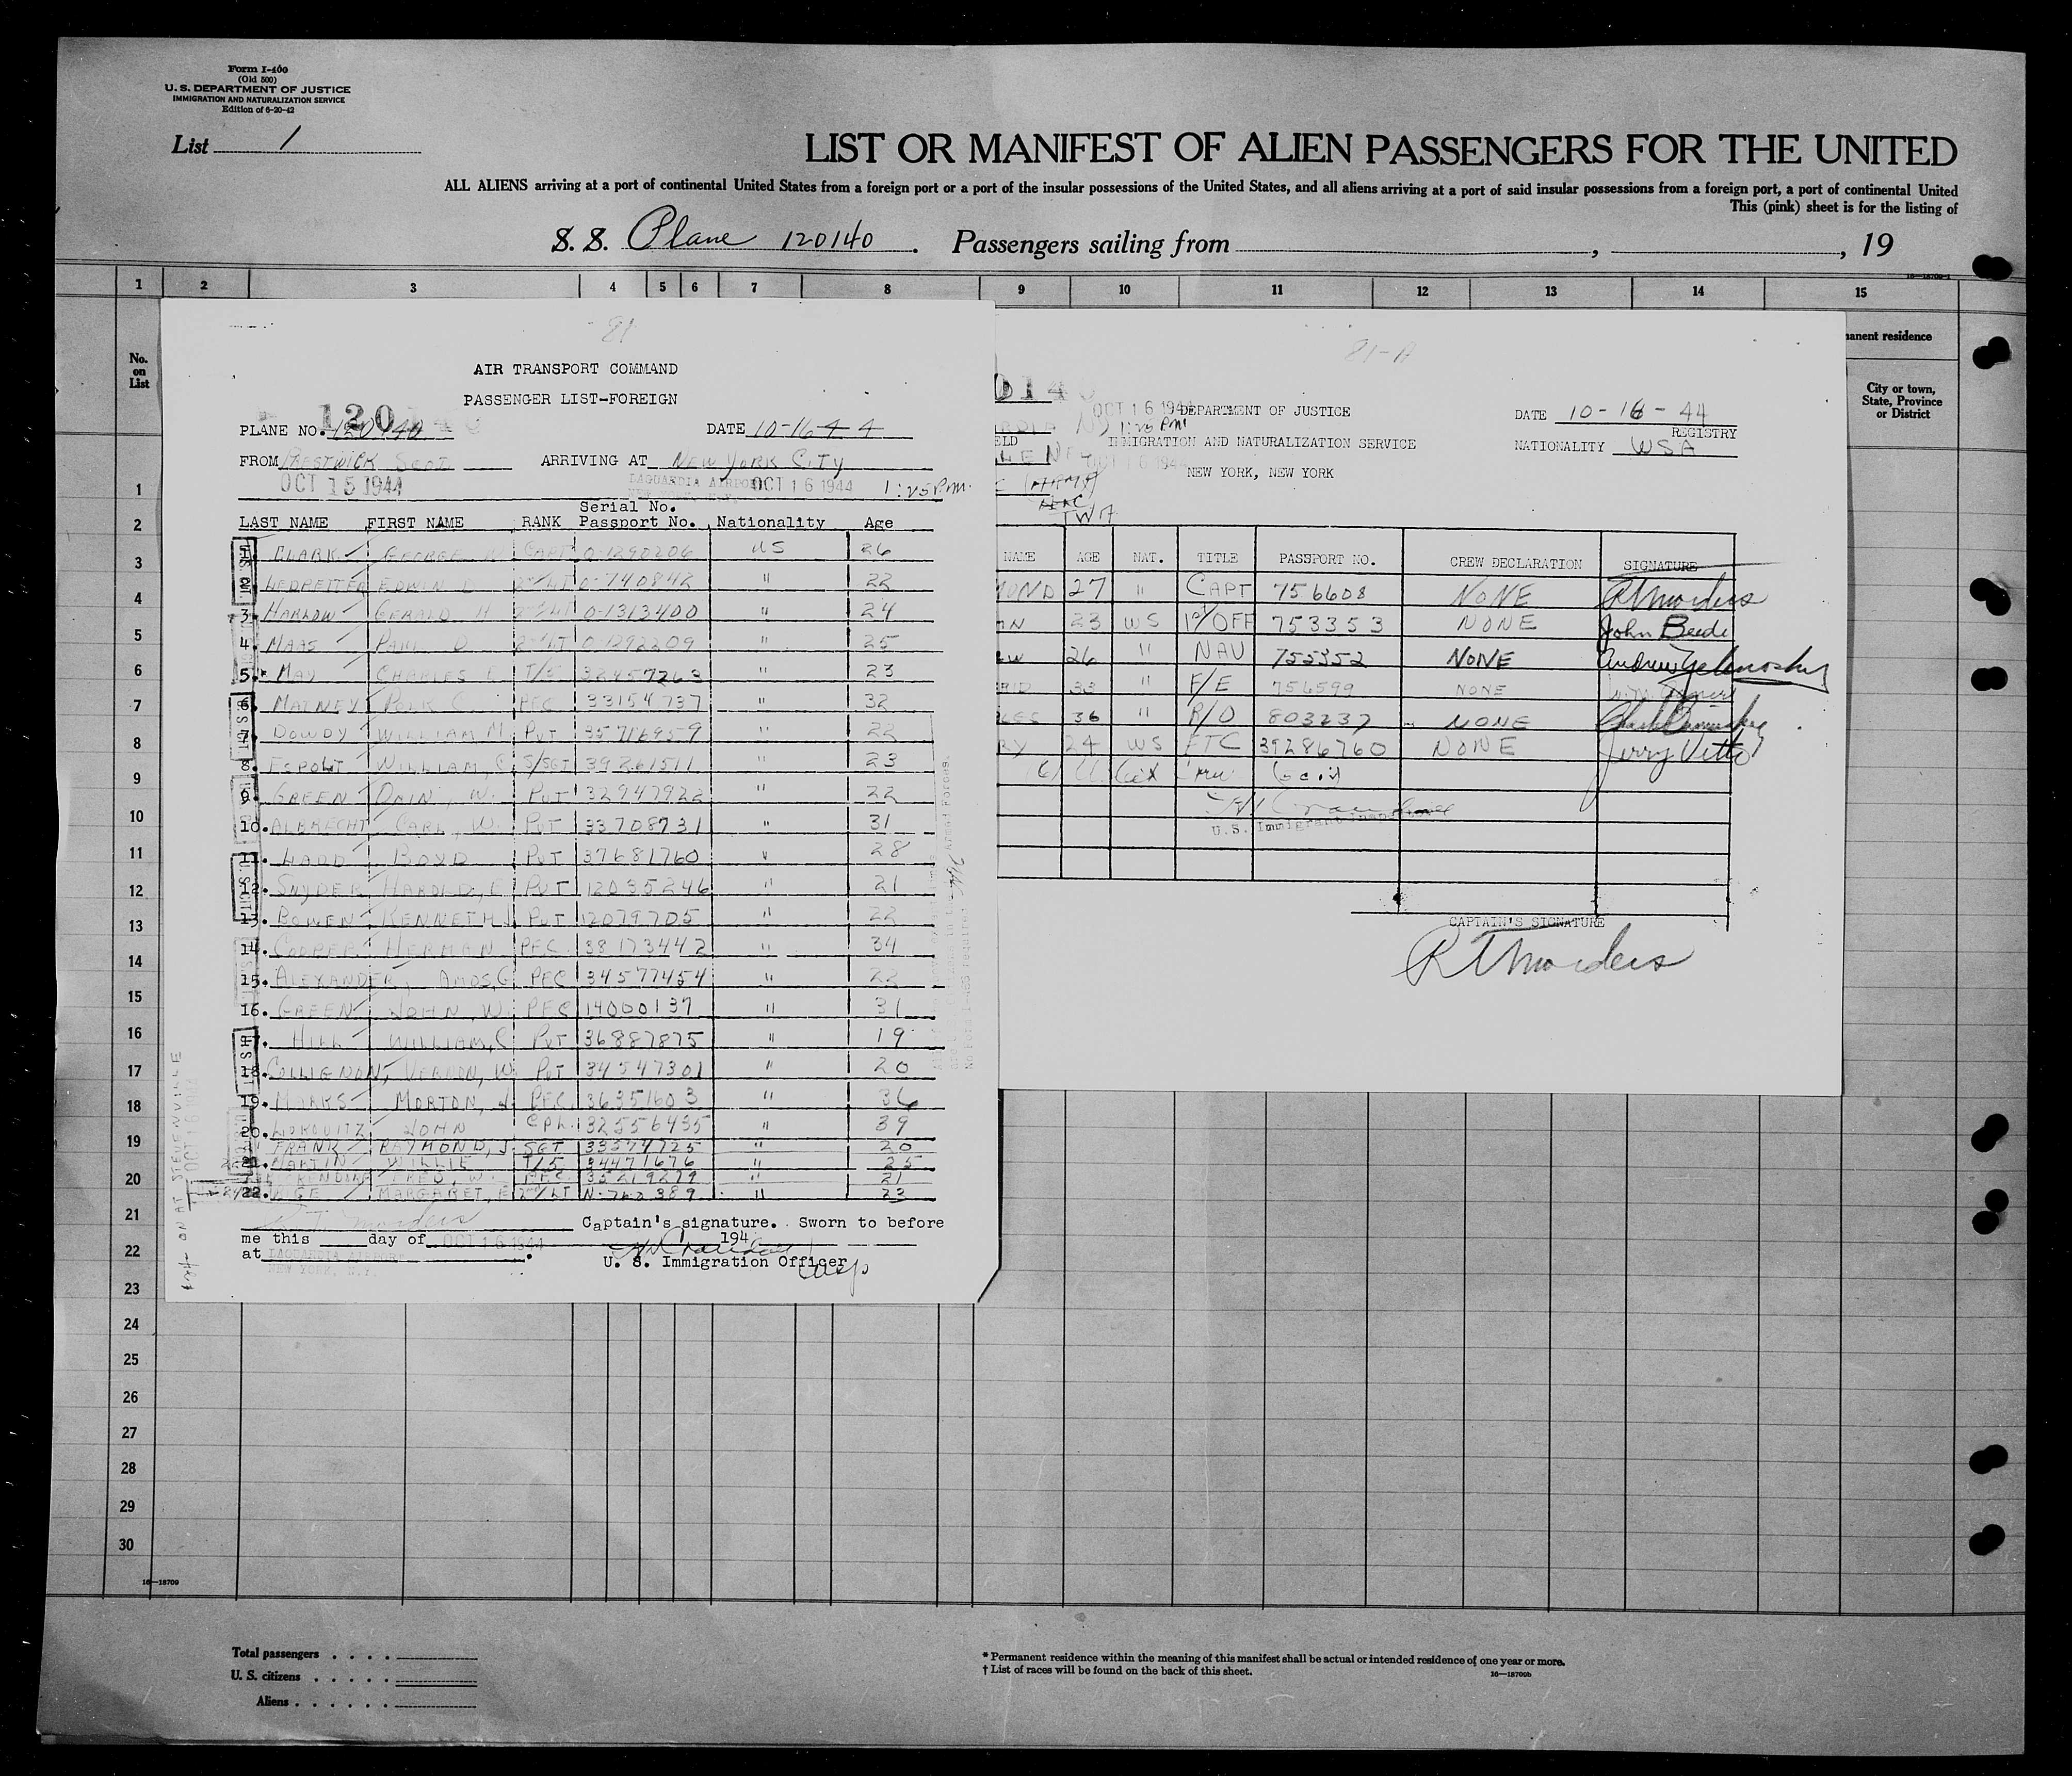 Form I-400
(Old 500)
U. S. DEPARTMENT OF JUSTICE
IMMIGRATION AND NATURALIZATION SERVICE
Edition of 6-20-42
List 1
LIST OR MANIFEST OF ALIEN PASSENGERS FOR THE UNITED
ALL ALIENS arriving at a port of continental United States from a foreign port or a port of the insular possessions of the United States, and all aliens arriving at a port of said insular possessions from a foreign port, a port of continental United
This (pink) sheet is for the listing of
S. S. Plane 120140 . Passengers sailing from , , 19
1 2 3 4 5 6 7 8 9 10 11 12 13 14 15
No. on List
anent residence
City or town, State, Province or District
81
AIR TRANSPORT COMMAND
PASSENGER LIST-FOREIGN
PLANE NO. 120140 DATE 10-16-44
FROM PRESTWICK SCOT ARRIVING AT NEW YORK CITY
OCT 15 1944 LAGUARDIA AIRPORT OCT 16 1944 1:25 P.m.
NEW YORK, N.Y.
LAST NAME FIRST NAME RANK Serial No. Passport No. Nationality Age
CLARK GEORGE CAPT 0-1290206 US 26
LEDBETTER EDWIN D 2nd LT 0-740842 " 22
3. HARLOW GERALD H 2nd LT 0-1313400 " 24
4. MAAS PAUL D 2nd LT 0-1292209 " 25
5. MAY CHARLES E T/5 32457263 " 23
6. MATNEY POLK C. PFC 33154737 " 32
7. DOWDY WILLIAM M. PVT 35716959 " 22
8. ESPOLT WILLIAM, C. S/SGT 39261511 " 23
9. GREEN ORIN, W. PVT 32947922 " 22
10. ALBRECHT CARL, W. PVT 33708731 " 31
11. LADD BOYD PVT 37681760 " 28
12. SNYDER HAROLD, E PVT 12035246 " 21
13. BOWEN KENNETH PVT 12079705 " 22
14. COOPER HERMAN PFC. 38173442 " 34
15. ALEXANDER, AMOS, G PFC 34577454 " 22
16. GREEN JOHN, W. PFC 14000137 " 31
17. HILL WILLIAM, C PVT 36887875 " 19
18. COLLIGNON, VERNON, W. PVT 34547301 " 20
19. MARKS MORTON, J. PFC. 36351603 " 36
20. JOHN CPL. 32556435 " 39
FRANK RAYMOND, J. SGT 33574725 " 20
21. MARTIN WILLIE T/5 34471676 " 25
FRED, W. PFC 35219279 " 21
22. MARGARET, E 2nd LT N-762389 " 23
Captain's signature. Sworn to before
me this day of OCT 16 1944 194
at LAGUARDIA AIRPORT
NEW YORK, N.Y.
U. S. Immigration Officer
Insp
ON AT STEPHENVILLE
81-A
OCT 16 1944 DEPARTMENT OF JUSTICE DATE 10-16-44
1:25 Pm
ELD IMMIGRATION AND NATURALIZATION SERVICE REGISTRY
NATIONALITY USA
NEW YORK, NEW YORK
TWA
NAME AGE NAT. TITLE PASSPORT NO. CREW DECLARATION SIGNATURE
MOND 27 " CAPT 756608 NONE R T Morders
HN 23 US 1st/OFF 753353 NONE John Beede
EW 26 " NAV 755352 NONE Andrew Zelenosky
RID 33 " F/E 756599 NONE
LES 36 " R/O 803237 NONE
RY 24 US FTC 39286760 NONE Jerry Vitto
U.S. Immigrant Inspector
CAPTAIN'S SIGNATURE
R T Morders
1
2
3
4
5
6
7
8
9
10
11
12
13
14
15
16
17
18
19
20
21
22
23
24
25
26
27
28
29
30
16—18709
Total passengers
U. S. citizens
Aliens
* Permanent residence within the meaning of this manifest shall be actual or intended residence of one year or more.
† List of races will be found on the back of this sheet.
16—18709b